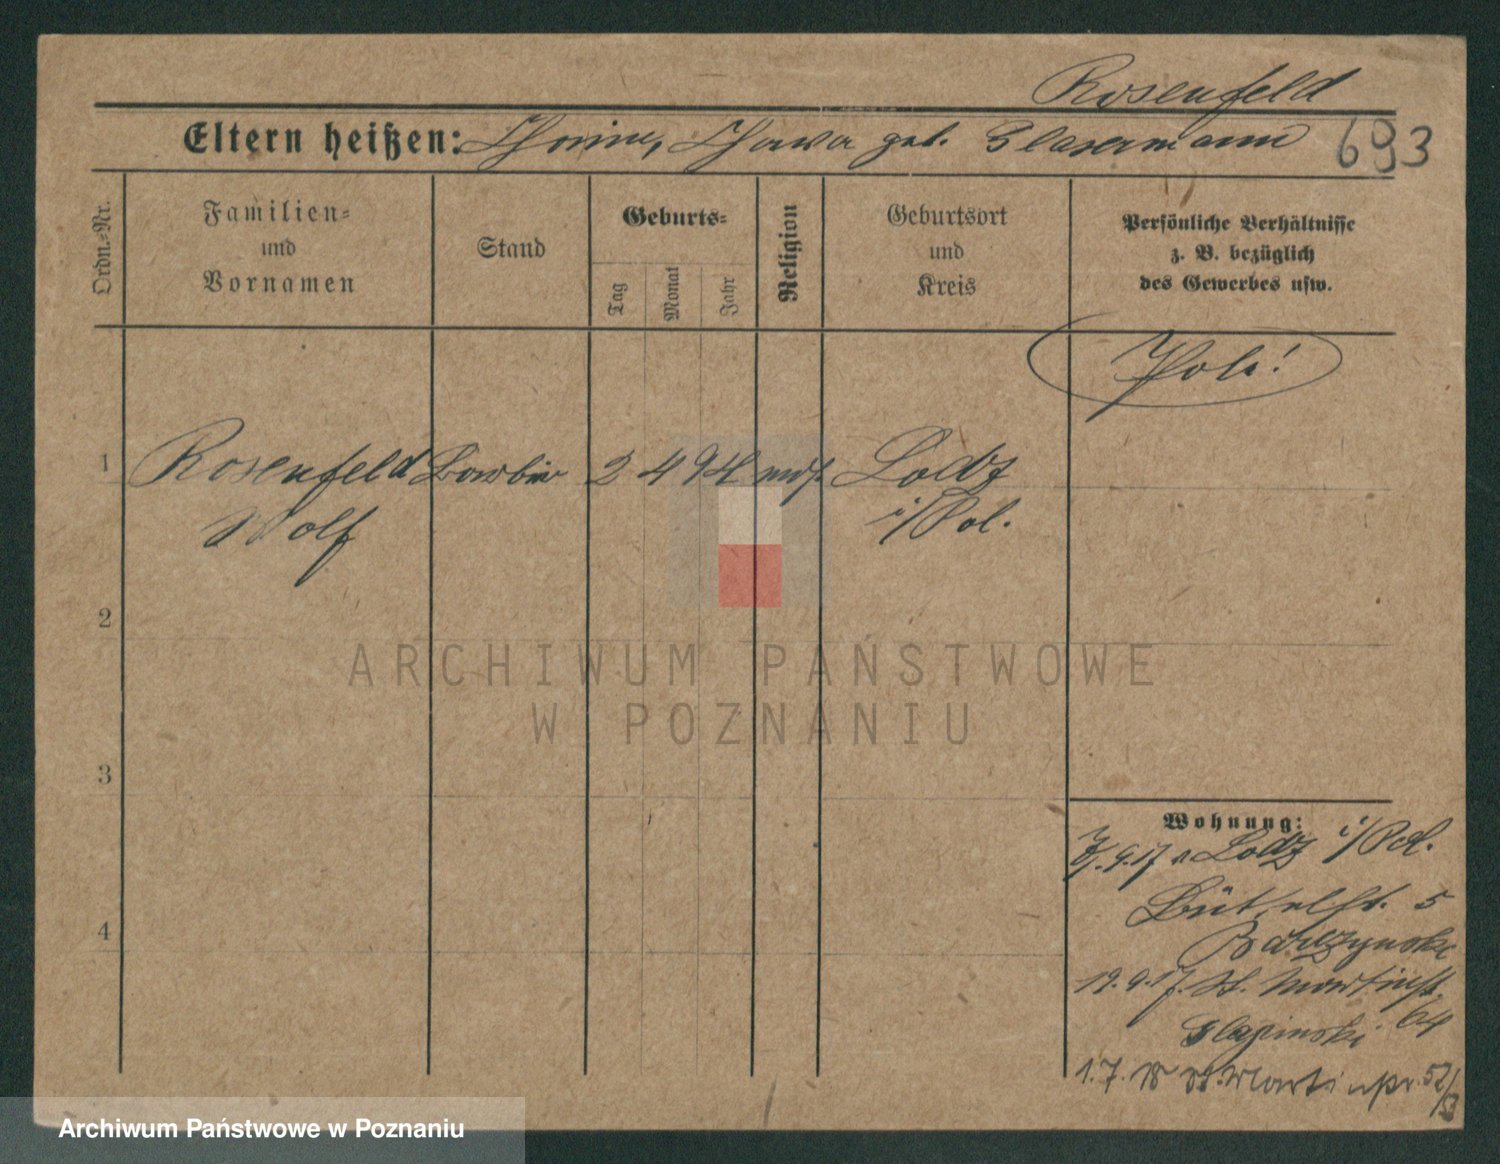 Rosenfeld
Eltern heißen: Chaim, Chawa geb. Glasermann 693
Ordn.-Nr.
Familien-
und
Vornamen
Stand
Geburts-
Tag
Monat
Jahr
Religion
Geburtsort
und
Kreis
Persönliche Verhältnisse
z. B. bezüglich
des Gewerbes usw.
Pole!
1 Rosenfeld Barbier 2 4 94 mos. Lodz
Wolf i/Pol.
2
3
4
Wohnung:
.9.17 v Lodz i/Pol.
Büttelst. 5
19.9.17. St. Martinst.
64
1.7.18 St. Martinstr. 52/53
ARCHIWUM PAŃSTWOWE
W POZNANIU
Archiwum Państwowe w Poznaniu